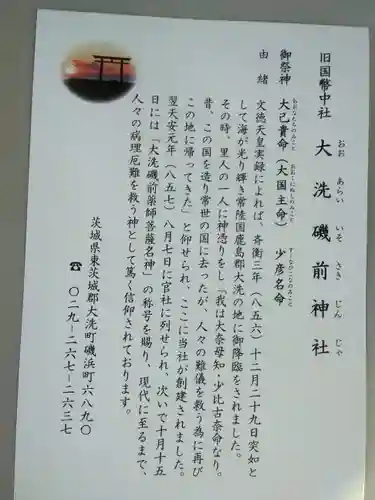 旧国幣中社 大洗磯前神社
おお あらい いそ さき じん じゃ
御祭神 大己貴命(大国主命) 少彦名命
おおなむちのみこと おおくにぬしのみこと すくなひこなのみこと
由緒
文徳天皇実録によれば、斉衡三年(八五六)十二月二十九日突如と
して海が光り輝き常陸国鹿島郡大洗の地に御降臨をされました。
その時、里人の一人に神憑りをし「我は大奈母知・少比古奈命なり。
昔、この国を造り常世の国に去ったが、人々の難儀を救う為に再び
この地に帰ってきた」と仰せられ、ここに当社が創建されました。
翌天安元年(八五七)八月七日に官社に列せられ、次いで十月十五
日には「大洗磯前薬師菩薩名神」の称号を賜り、現代に至るまで、
人々の病理厄難を救う神として篤く信仰されております。
茨城県東茨城郡大洗町磯浜町六八九〇
☎ 〇二九-二六七-二六三七